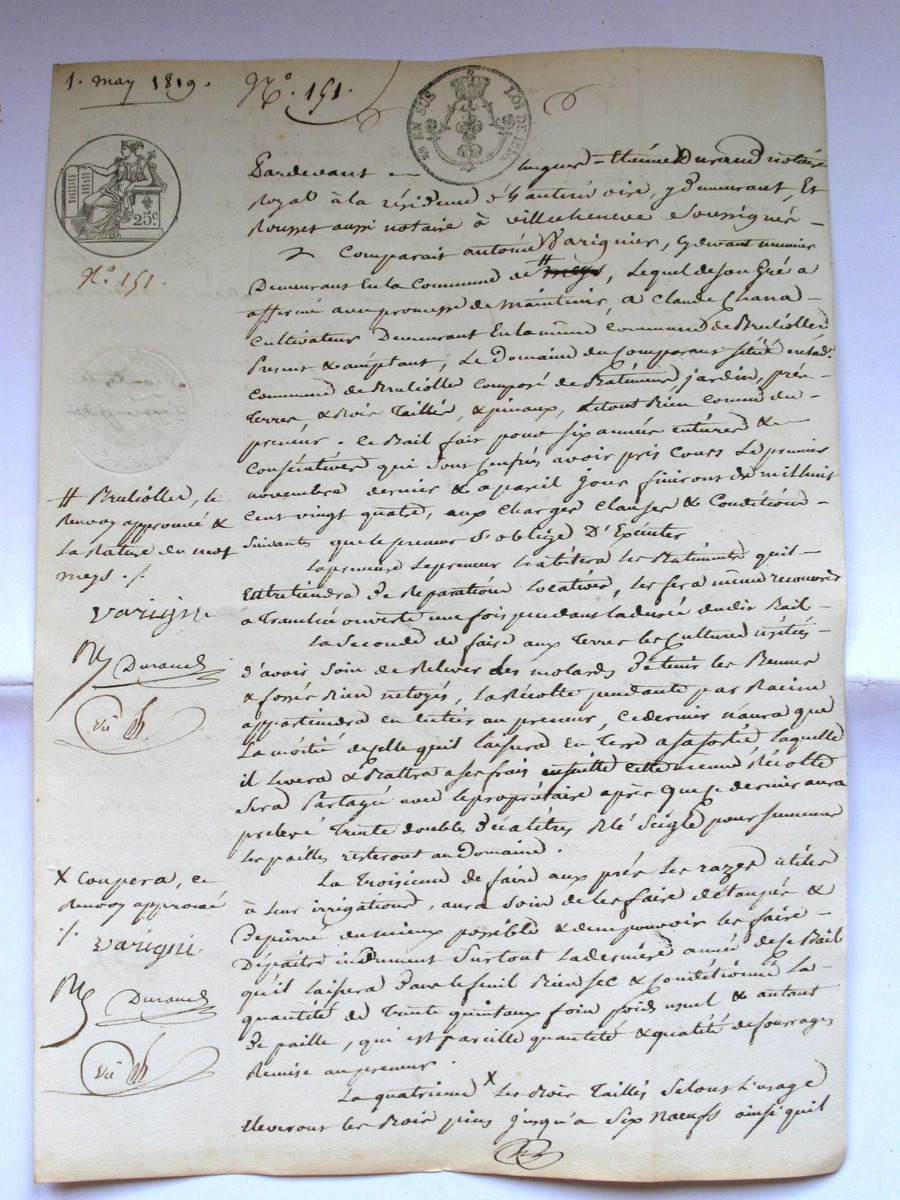 1. may 1819.
N.º 151.
¼ EN SUS LOI DE 1818
25.c
N.º 151.
Pardevant Etienne Durand notaire
Royal à la résidence de y demeurant, Et
Rousset aussi notaire à villecheneve Soussignés
Comparait antoine Varignier, Cydevant
Demeurant En la Commune de meys, Lequel de Son Gré a
affermé avec promesse de maintenir, a Claude Chana
Cultivateur Demeurant En la même Commune de Bruliolles
Present & acceptant, Le Domaine du Comparant Situé en lad.
Commune de Brulioller Composé de Batiment, jardin, prés
Terres, & Bois Taillés, & pinaux, Letout Bien Connu du
preneur. Ce Bail fait pour six années entieres &
Consécutives qui Sont Censées avoir pris Cours Le premier
novembre dernier & a pareil jour finiront de mil huit
Cent vingt quatre, aux Charges Clauses & Conditions
Suivantes que le preneur S'oblige D'Exécuter
La premiere Le preneur habitera les Batiments qu'il
Entretiendra De Reparations Locatives, les fera même recouvrir
a Tranchée ouverte une fois pendant la durée dudit Bail
La Seconde de faire aux Terres les Cultures usitées
d'avoir Soin de Relever les molards D'étenir les
& fossés Bien netoyés, La Récolte pendante par Racine
appartiendra en Entier au preneur, Ce dernier n'aura que
La moitié de celle qu'il laissera En Terre a sa sortie laquelle
il Levera & Battra a ses frais ensuitte cette même Récolte
Sera Partagée avec le propriétaire après que ce dernier aura
prelevé Trente doubles Décalitres Blé Seigle pour semence
les pailles resteront au Domaine.
La Troisieme de faire aux prés les razes utiles
à leur irrigation, aura Soin de les faire détauper &
Depierré du mieux possible & de ne pouvoir les faire
Dépaitre induement Surtout la derniere année de ce Bail
qu'il laissera Dans le feuil Bien sec & Conditionné La
quantité de Trente quintaux foin poids usuel & autant
De paille, qui est pareille quantité & qualité de fourrages
Remise au preneur.
La quatrieme X Les Bois Taillés Selons L'usage
Eleverons les Bois pins jusqu'a Six Nœufs ainsi qu'il
# Brulioller, le
Renvoy approuvé &
La Rature du mot
meys ./.
varigni
Durand
vu
X Coupera, ce
Renvoy approuvé
./.
varigni
Durand
vu